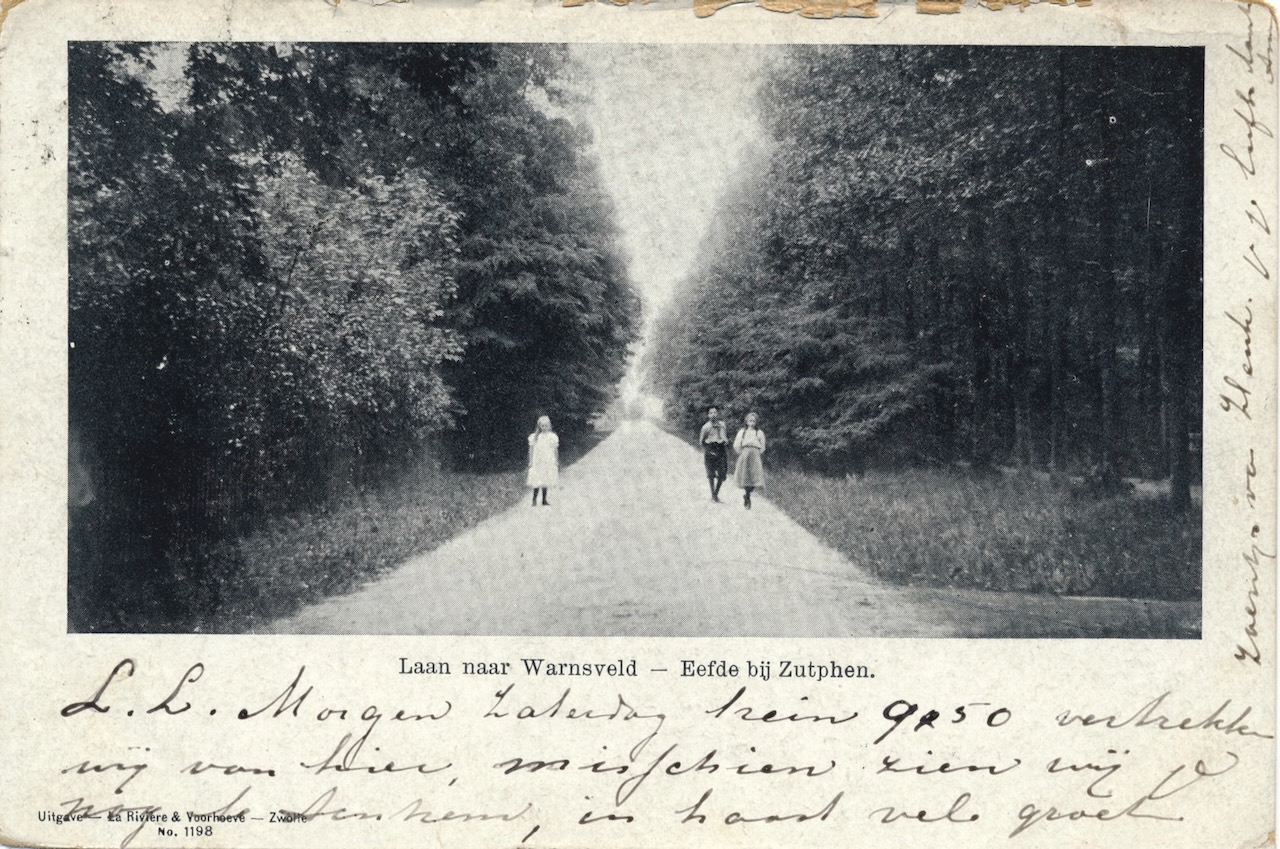 Laan naar Warnsveld — Eefde bij Zutphen.
L. L. Morgen Zaterdag trein 9.50 vertrekken
wij van hier, misschien zien wij je
nog te, in haast vele groet
Uitgave — La Rivière & Voorhoeve — Zwolle
No. 1198
Zoentje van Henk. V V